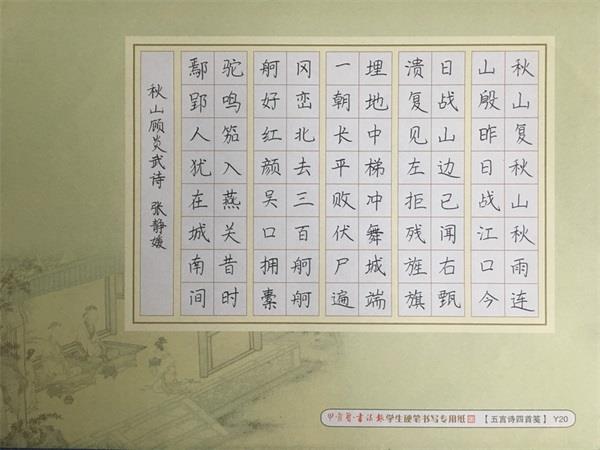 秋山复秋山秋雨连
山殷昨日战江口今
日战山边已闻右甄
溃复见左拒残旌旗
埋地中梯冲舞城端
一朝长平败伏尸遍
冈峦北去三百舸舸
舸好红颜吴口拥橐
驼鸣笳入燕关昔时
鄢郢人犹在城南间
秋山顾炎武诗 张静媛
书法报 学生硬笔书写专用纸 【五言诗四首笺】 Y20